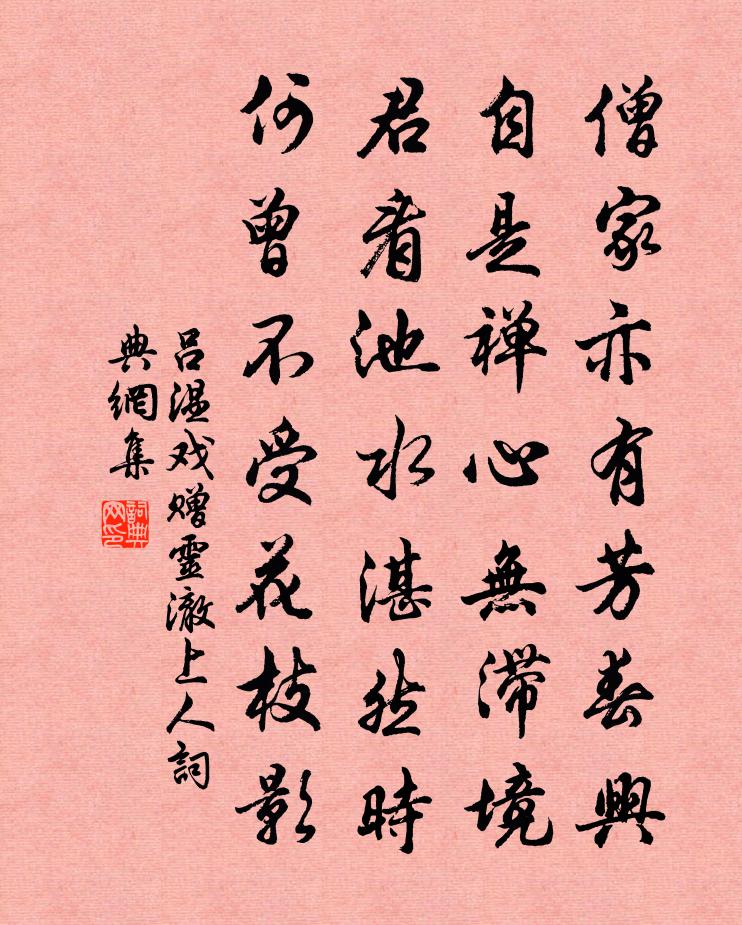 僧家亦有芳春興
自是禅心無滞境
君看池水湛然時
何曾不受花枝影
吕温戏赠靈澈上人詞
典網集
詞典網印